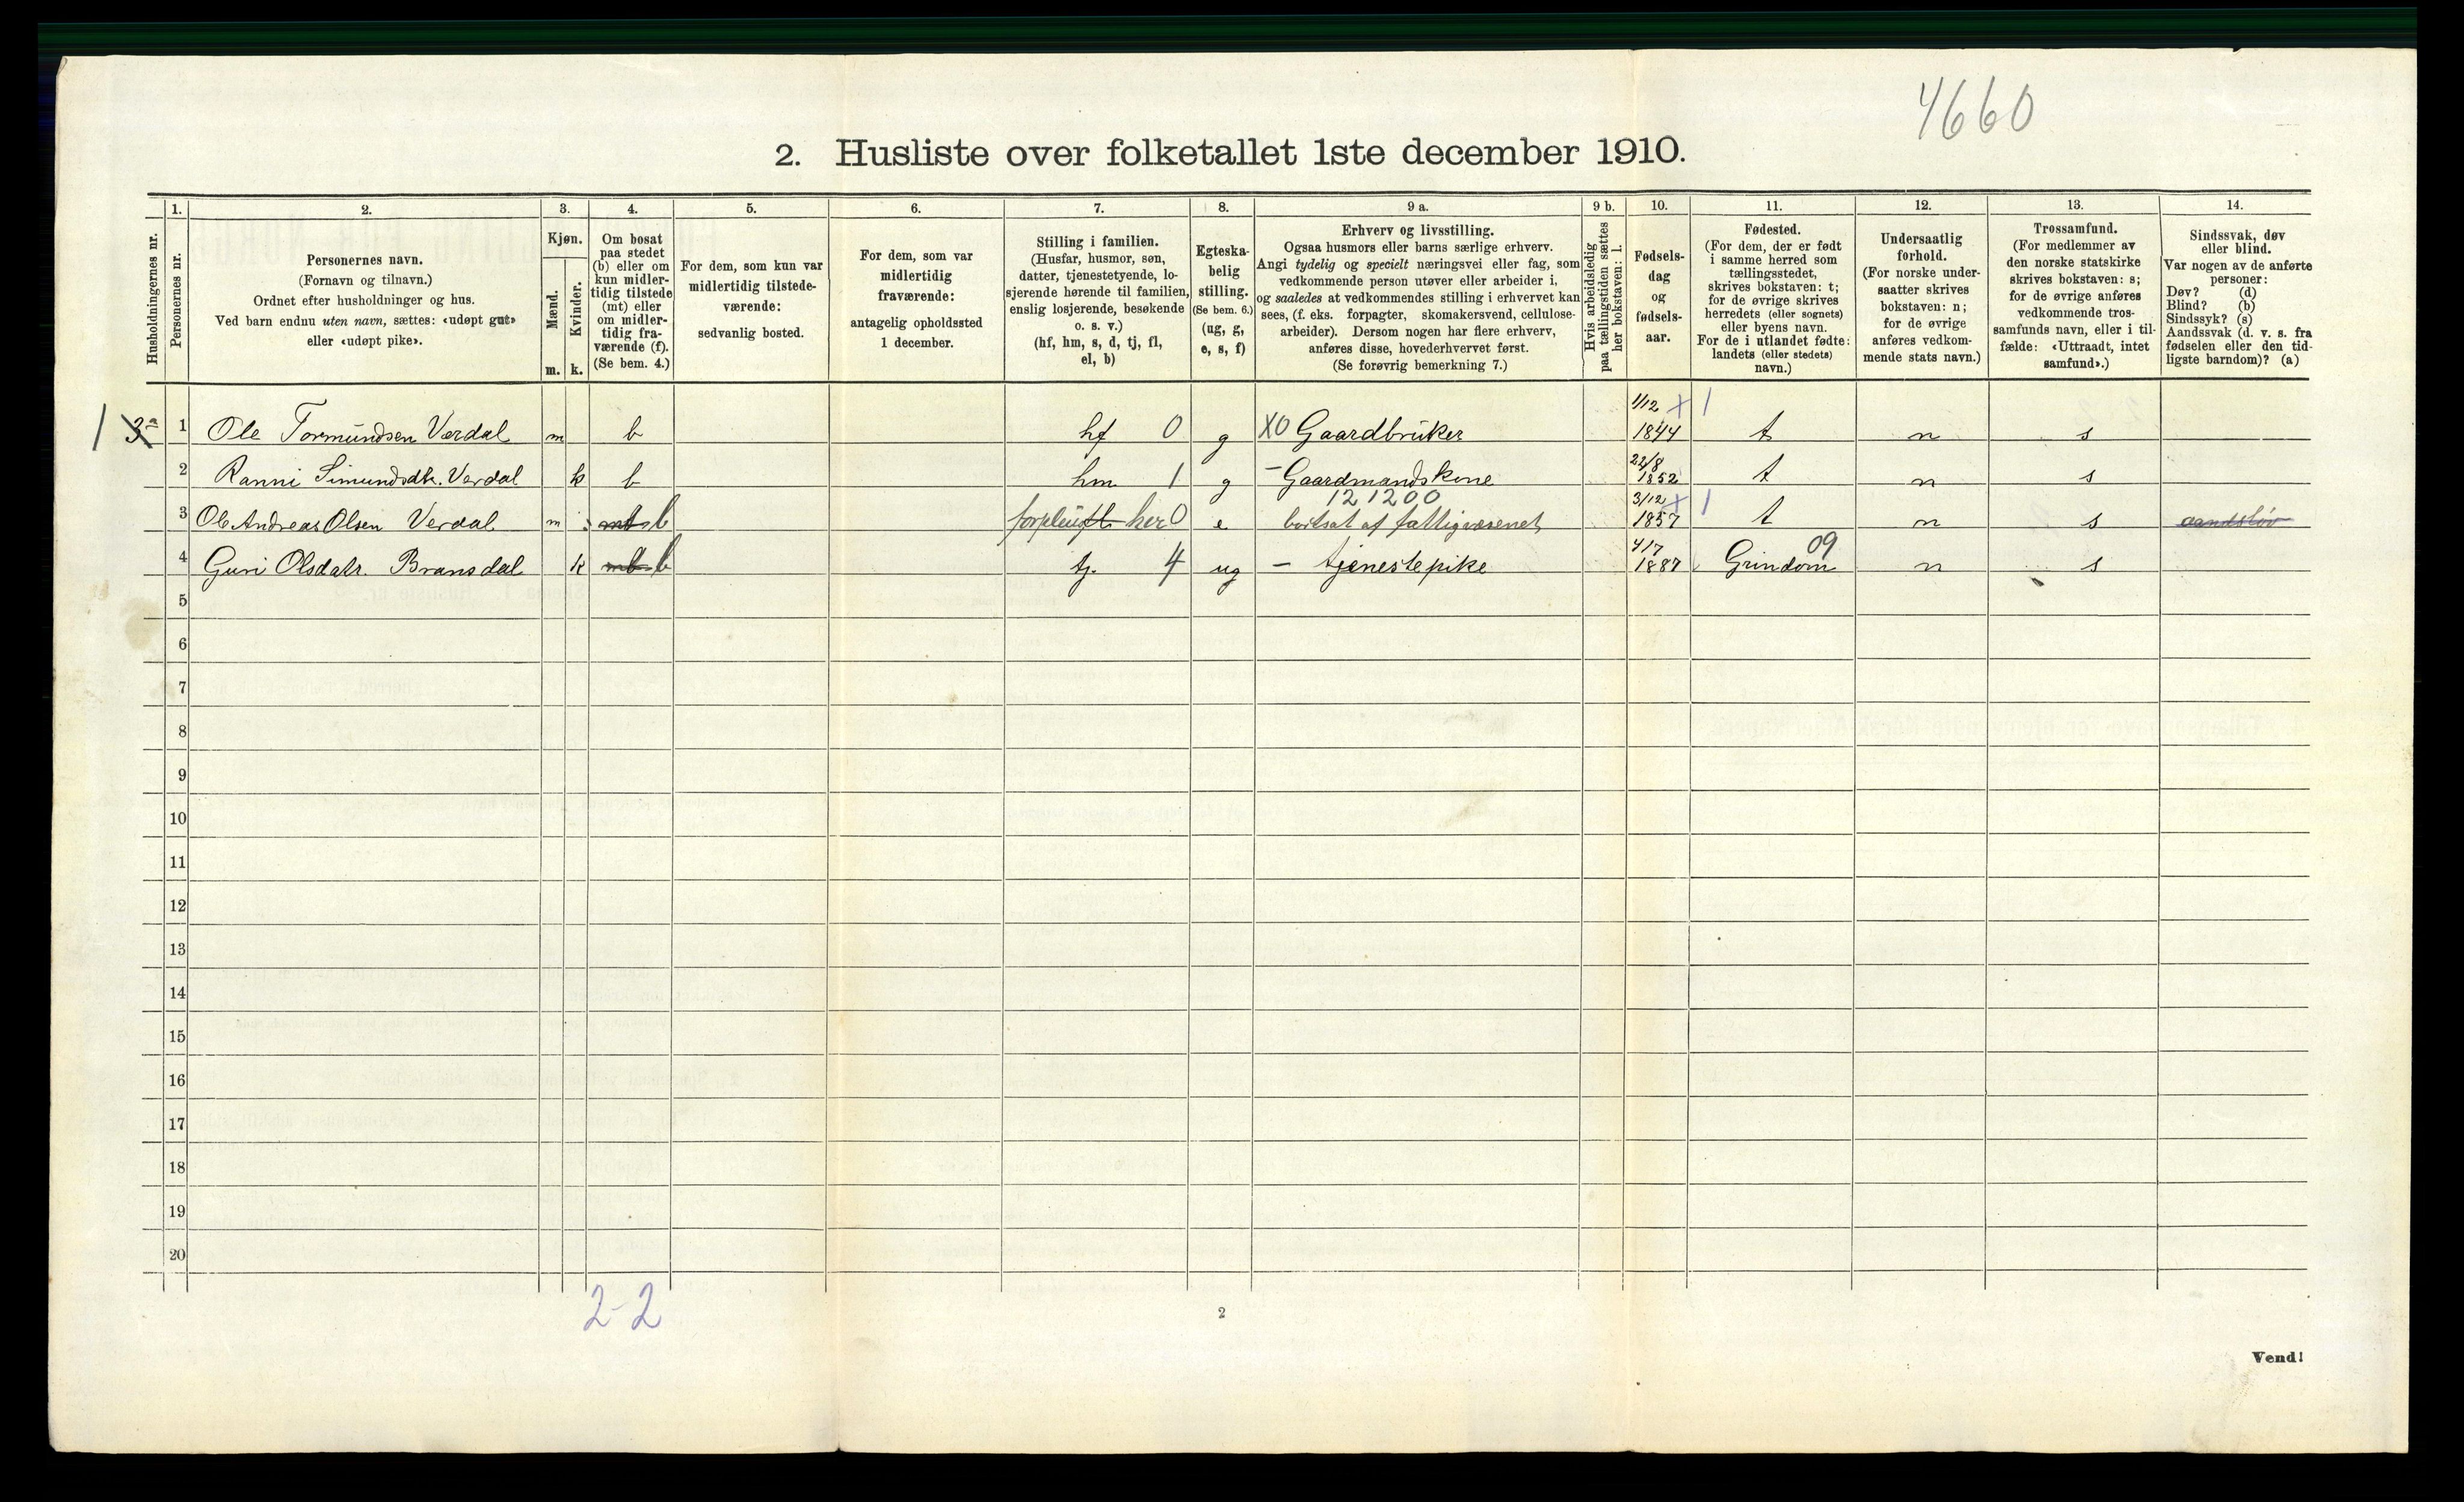 4660
2. Husliste over folketallet 1ste december 1910.
Husholdningernes nr.
1.
Personernes nr.
2.
Personernes navn.
(Fornavn og tilnavn.)
Ordnet efter husholdninger og hus.
Ved barn endnu uten navn, sættes: «udøpt gut»
eller «udøpt pike».
3.
Kjøn.
Mænd.
Kvinder.
m. k.
4.
Om bosat
paa stedet
(b) eller om
kun midler-
tidig tilstede
(mt) eller
om midler-
tidig fra-
værende (f).
(Se bem. 4.)
5.
For dem, som kun var
midlertidig tilstede-
værende:
sedvanlig bosted.
6.
For dem, som var
midlertidig
fraværende:
antagelig opholdssted
1 december.
7.
Stilling i familien.
(Husfar, husmor, søn,
datter, tjenestetyende, lo-
sjerende hørende til familien,
enslig losjerende, besøkende
o. s. v.)
(hf, hm, s, d, tj, fl,
el, b)
8.
Egteska-
belig
stilling.
(Se bem. 6.)
(ug, g,
e, s, f)
9 a.
Erhverv og livsstilling.
Ogsaa husmors eller barns særlige erhverv.
Angi tydelig og specielt næringsvei eller fag, som
vedkommende person utøver eller arbeider i,
og saaledes at vedkommendes stilling i erhvervet kan
sees, (f. eks. forpagter, skomakersvend, cellulose-
arbeider). Dersom nogen har flere erhverv,
anføres disse, hovederhvervet først.
(Se forøvrig bemerkning 7.)
9 b.
Hvis arbeidsledig
paa tællingstiden sættes
her bokstaven: l.
10.
Fødsels-
dag
og
fødsels-
aar.
11.
Fødested.
(For dem, der er født
i samme herred som
tællingsstedet,
skrives bokstaven: t;
for de øvrige skrives
herredets (eller sognets)
eller byens navn.
For de i utlandet fødte:
landets (eller stedets)
navn.)
12.
Undersaatlig
forhold.
(For norske under-
saatter skrives
bokstaven: n;
for de øvrige
anføres vedkom-
mende stats navn.)
13.
Trossamfund.
(For medlemmer av
den norske statskirke
skrives bokstaven: s;
for de øvrige anføres
vedkommende tros-
samfunds navn, eller i til-
fælde: «Uttraadt, intet
samfund».)
14.
Sindssvak, døv
eller blind.
Var nogen av de anførte
personer:
Døv? (d)
Blind? (b)
Sindssyk? (s)
Aandssvak (d. v. s. fra
fødselen eller den tid-
ligste barndom)? (a)
1 3 1 Ole Tormundsen Verdal m b hf 0 g X0 Gaardbruker 1/12 1844 X 1 t n s
2 Ranni Simundsdtr. Verdal k b hm 1 g - Gaardmandskone 22/8 1852 t n s
121200
3 Ole Andreas Olsen Verdal m mt b forpleiet her 0 e bortsat af fattigvæsenet 3/12 1857 X 1 t n s aandsløv
4 Guri Olsdatr. Bransdal k mt b tj. 4 ug - tjenestepike 4/7 1887 Grindom 09 n s
5
6
7
8
9
10
11
12
13
14
15
16
17
18
19
20
2-2
2
Vend!